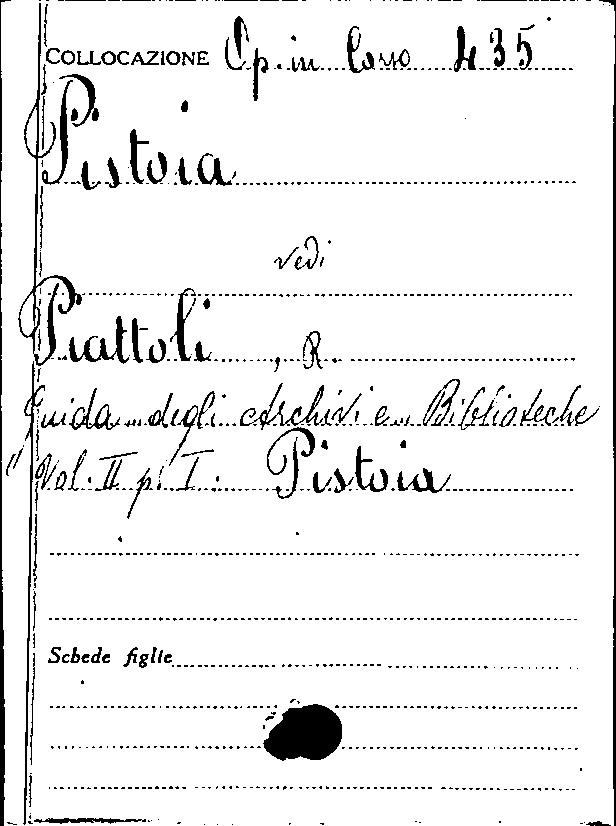 COLLOCAZIONE Op. in Corso 435
Pistoia
vedi
Piattoli, R.
Guida... degli Archivi e... Biblioteche
" Vol. II p. I. Pistoia
Schede figlie